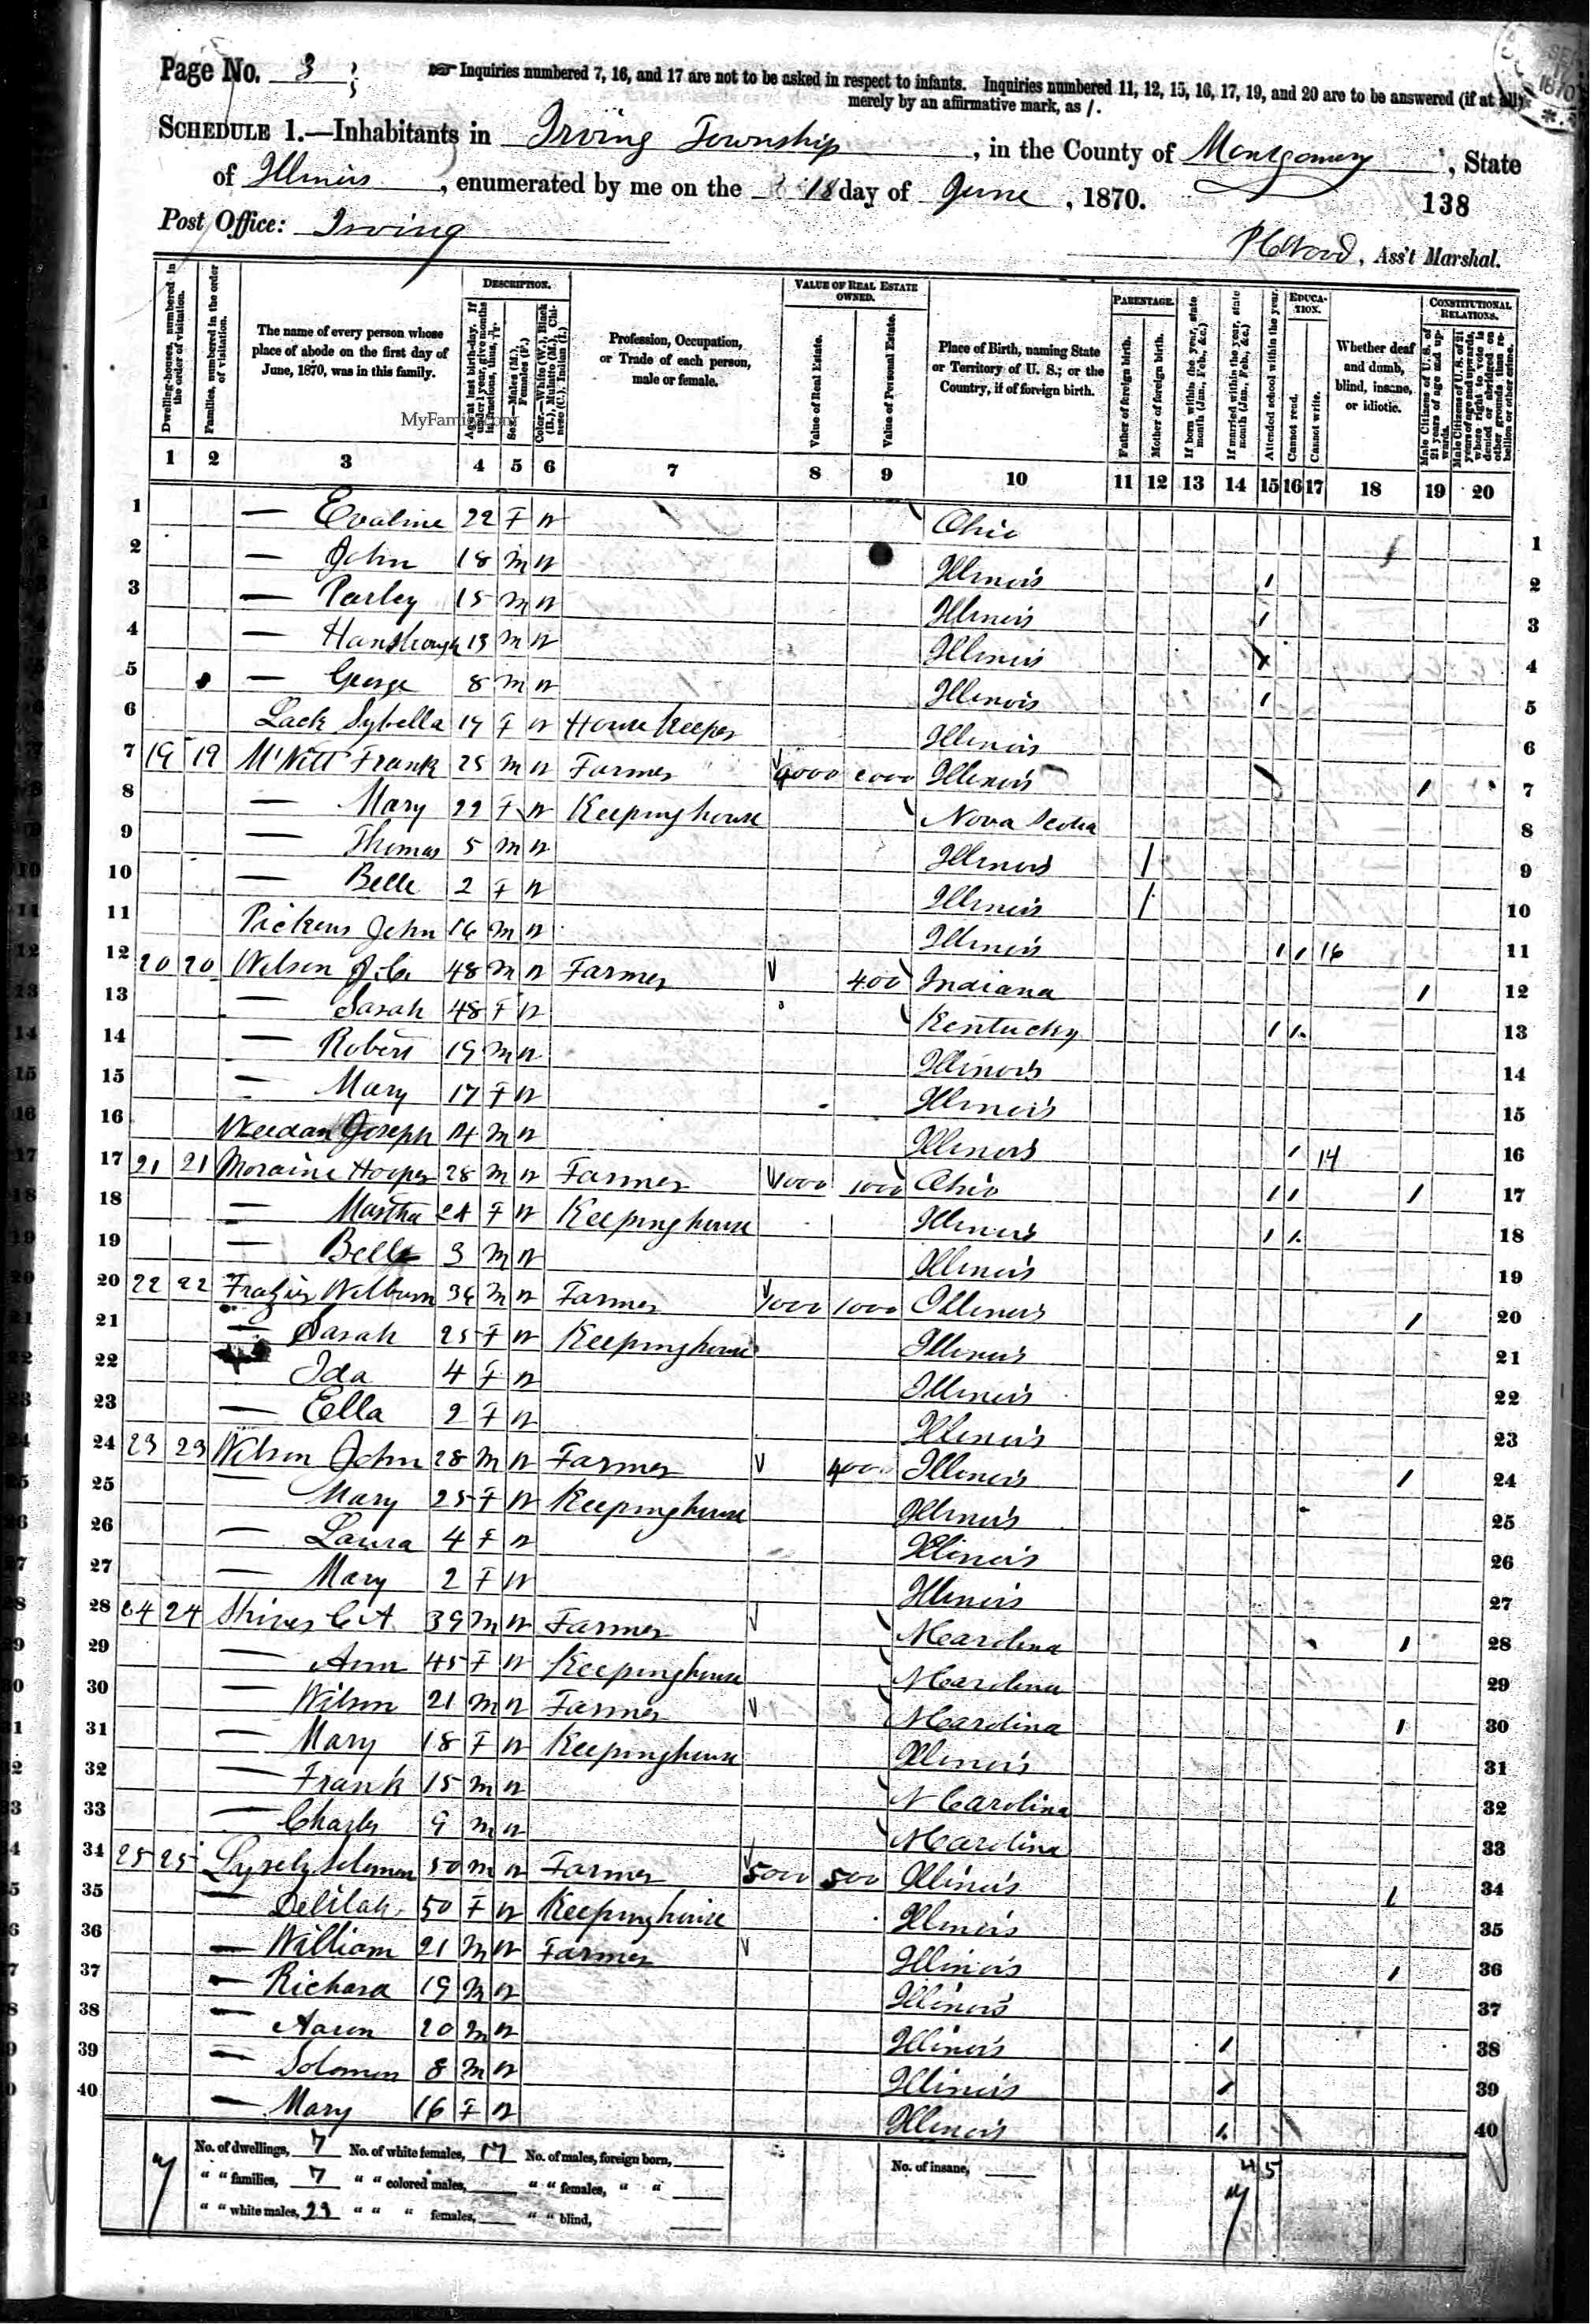 Page No. 3
☞ Inquiries numbered 7, 16, and 17 are not to be asked in respect to infants. Inquiries numbered 11, 12, 15, 16, 17, 19, and 20 are to be answered (if at all)
merely by an affirmative mark, as /.
SCHEDULE 1.—Inhabitants in Irving Township, in the County of Montgomery, State
of Illinois, enumerated by me on the 18 day of June, 1870.
138
Post Office: Irving
Wood, Ass't Marshal.
Dwelling-houses, numbered in the order of visitation.
Families, numbered in the order of visitation.
The name of every person whose place of abode on the first day of June, 1870, was in this family.
DESCRIPTION.
Age at last birth-day. If under 1 year, give months in fractions, thus,
Sex.—Males (M.), Females (F.)
Color.—White (W.), Black (B.), Mulatto (M.), Chinese (C.), Indian (I.)
Profession, Occupation, or Trade of each person, male or female.
VALUE OF REAL ESTATE OWNED.
Value of Real Estate.
Value of Personal Estate.
Place of Birth, naming State or Territory of U. S.; or the Country, if of foreign birth.
PARENTAGE.
Father of foreign birth.
Mother of foreign birth.
If born within the year, state month (Jan., Feb., &c.)
If married within the year, state month (Jan., Feb., &c.)
Attended school within the year.
EDUCATION.
Cannot read.
Cannot write.
Whether deaf and dumb, blind, insane, or idiotic.
CONSTITUTIONAL RELATIONS.
Male Citizens of U. S. of 21 years of age and upwards.
Male Citizens of U. S. of 21 years of age and upwards, whose right to vote is denied or abridged on other grounds than rebellion or other crime.
MyFamily.com
1 2 3 4 5 6 7 8 9 10 11 12 13 14 15 16 17 18 19 20
1 — Evaline 22 F W Ohio 1
2 — John 18 M W Illinois / 2
3 — Parley 15 M W Illinois / 3
4 — Hanshrough 13 M W Illinois / 4
5 — George 8 M W Illinois / 5
6 Lack Sybella 17 F W House Keeper Illinois 6
7 19 19 McNitt Frank 25 M W Farmer 4000 2000 Illinois / 7
8 — Mary 22 F W Keeping house Nova Scotia 8
9 — Thomas 5 M W Illinois / 9
10 — Belle 2 F W Illinois / 10
11 Pickens John 16 M W Illinois / / 16 11
12 20 20 Wilson J. C. 48 M W Farmer 400 Indiana / 12
13 — Sarah 48 F W Kentucky / / 13
14 — Robert 19 M W Illinois 14
15 — Mary 17 F W Illinois 15
16 Weedan Joseph 14 M W Illinois / 14 16
17 21 21 Moraine Hooper 28 M W Farmer 1000 100 Ohio / / / 17
18 — Martha 24 F W Keeping house Illinois / / 18
19 — Belle 3 M W Illinois 19
20 22 22 Frazier Wilburn 36 M W Farmer 1000 1000 Illinois / 20
21 — Sarah 25 F W Keeping house Illinois 21
22 — Ida 4 F W Illinois 22
23 — Ella 2 F W Illinois 23
24 23 23 Wilson John 28 M W Farmer 400 Illinois / 24
25 — Mary 25 F W Keeping house Illinois 25
26 — Laura 4 F W Illinois 26
27 — Mary 2 F W Illinois 27
28 24 24 Shives C A 39 M W Farmer N Carolina / 28
29 — Ann 45 F W Keeping house N Carolina 29
30 — Wilson 21 M W Farmer N Carolina / 30
31 — Mary 18 F W Keeping house Illinois 31
32 — Frank 15 M W N Carolina 32
33 — Charly 9 M W N Carolina 33
34 25 25 Lyrely Solomon 50 M W Farmer 5000 500 Illinois / 34
35 — Delilah 50 F W Keeping house Illinois 35
36 — William 21 M W Farmer Illinois / 36
37 — Richard 19 M W Illinois 37
38 — Aaron 20 M W Illinois / 38
39 — Solomon 8 M W Illinois / 39
40 — Mary 16 F W Illinois / 40
No. of dwellings, 7 No. of white females, 17 No. of males, foreign born, No. of insane,
" " families, 7 " " colored males, " " females, " "
" " white males, 23 " " " females, " " blind,